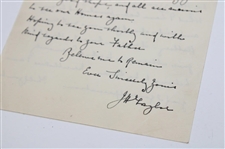 and all are anxious
to see our Homes again.
Hoping to see you shortly and with
kind regards to your Father
Believe me to Remain
Ever Sincerely Yours
J H Taylor